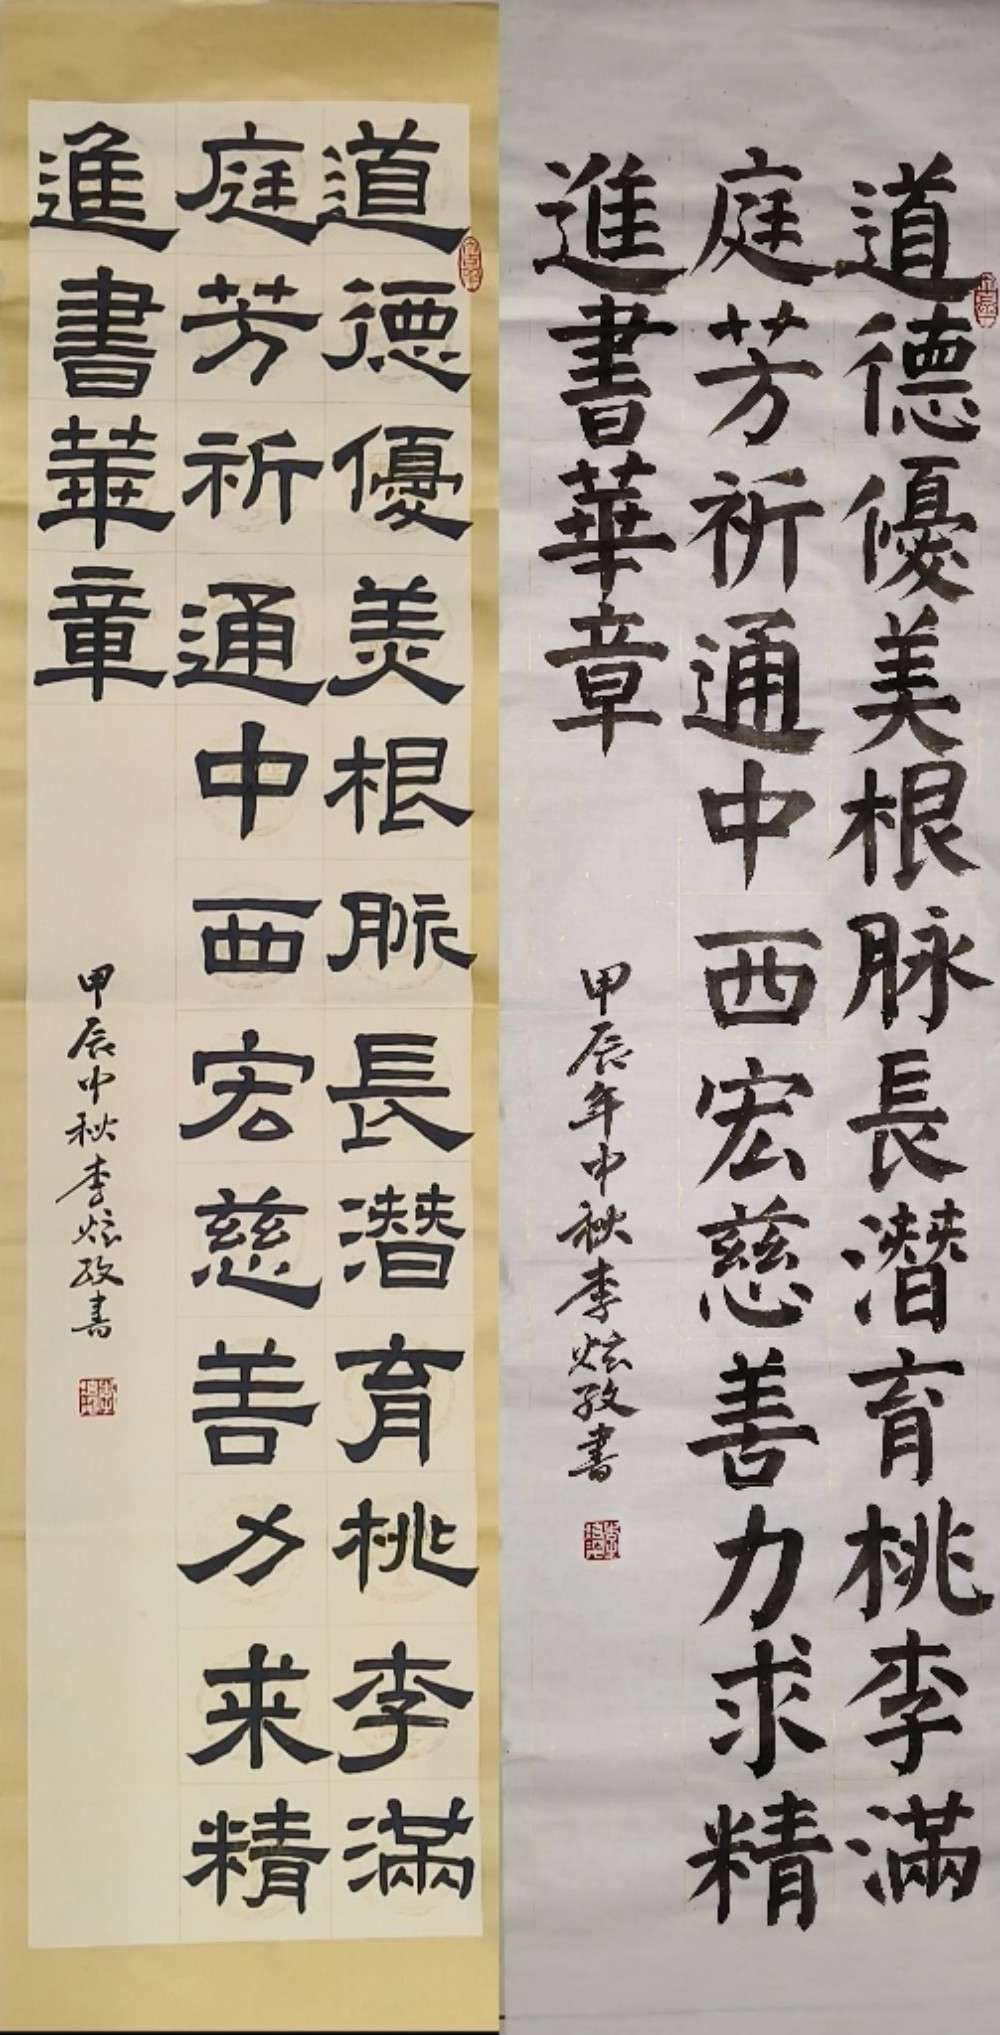 道德優美根脈長潛育桃李滿
庭芳祈通中西宏慈善力求精
進書華章
甲辰中秋李炫孜書
道德優美根脉長潛育桃李滿
庭芳祈通中西宏慈善力求精
進書華章
甲辰年中秋李炫孜書